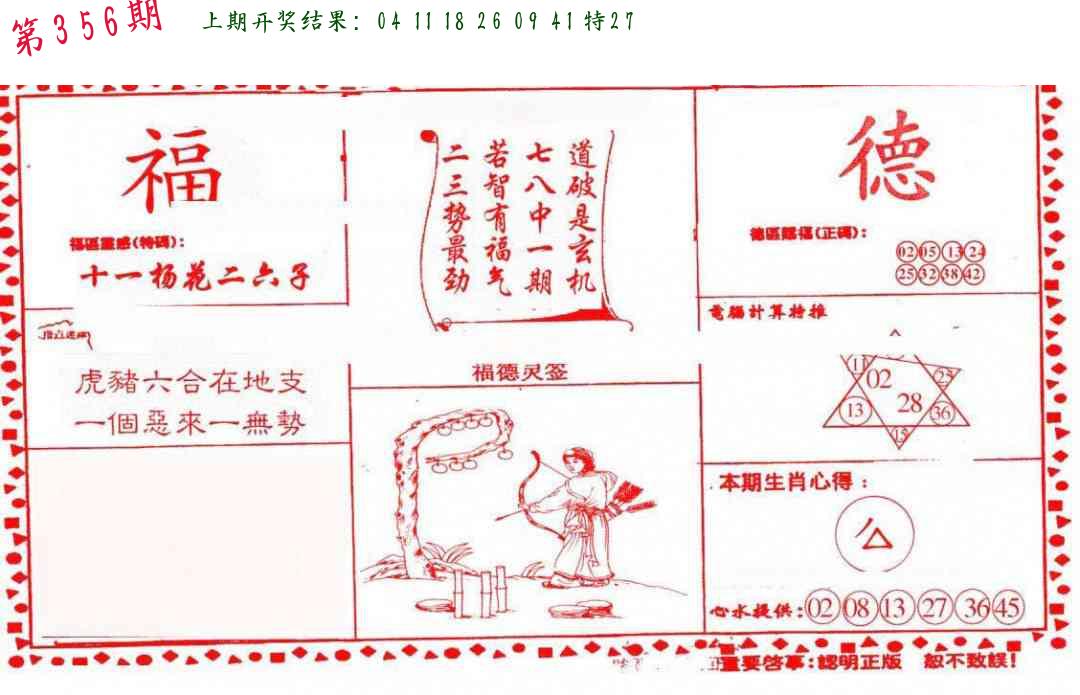 第356期
上期开奖结果：04 11 18 26 09 41特27
福
福區靈感(特碼)：
十一杨花二六子
道破是玄机
七八中一期
若智有福气
二三势最劲
德
德區賜福(正碼)：
02 05 13 24
25 32 38 42
虎豬六合在地支
一個惡來一無勢
福德灵签
電腦計算特推
11 02 25
13 28 36
15
本期生肖心得：
心水提供：02 08 13 27 36 45
重要啓事：認明正版 恕不致誤！